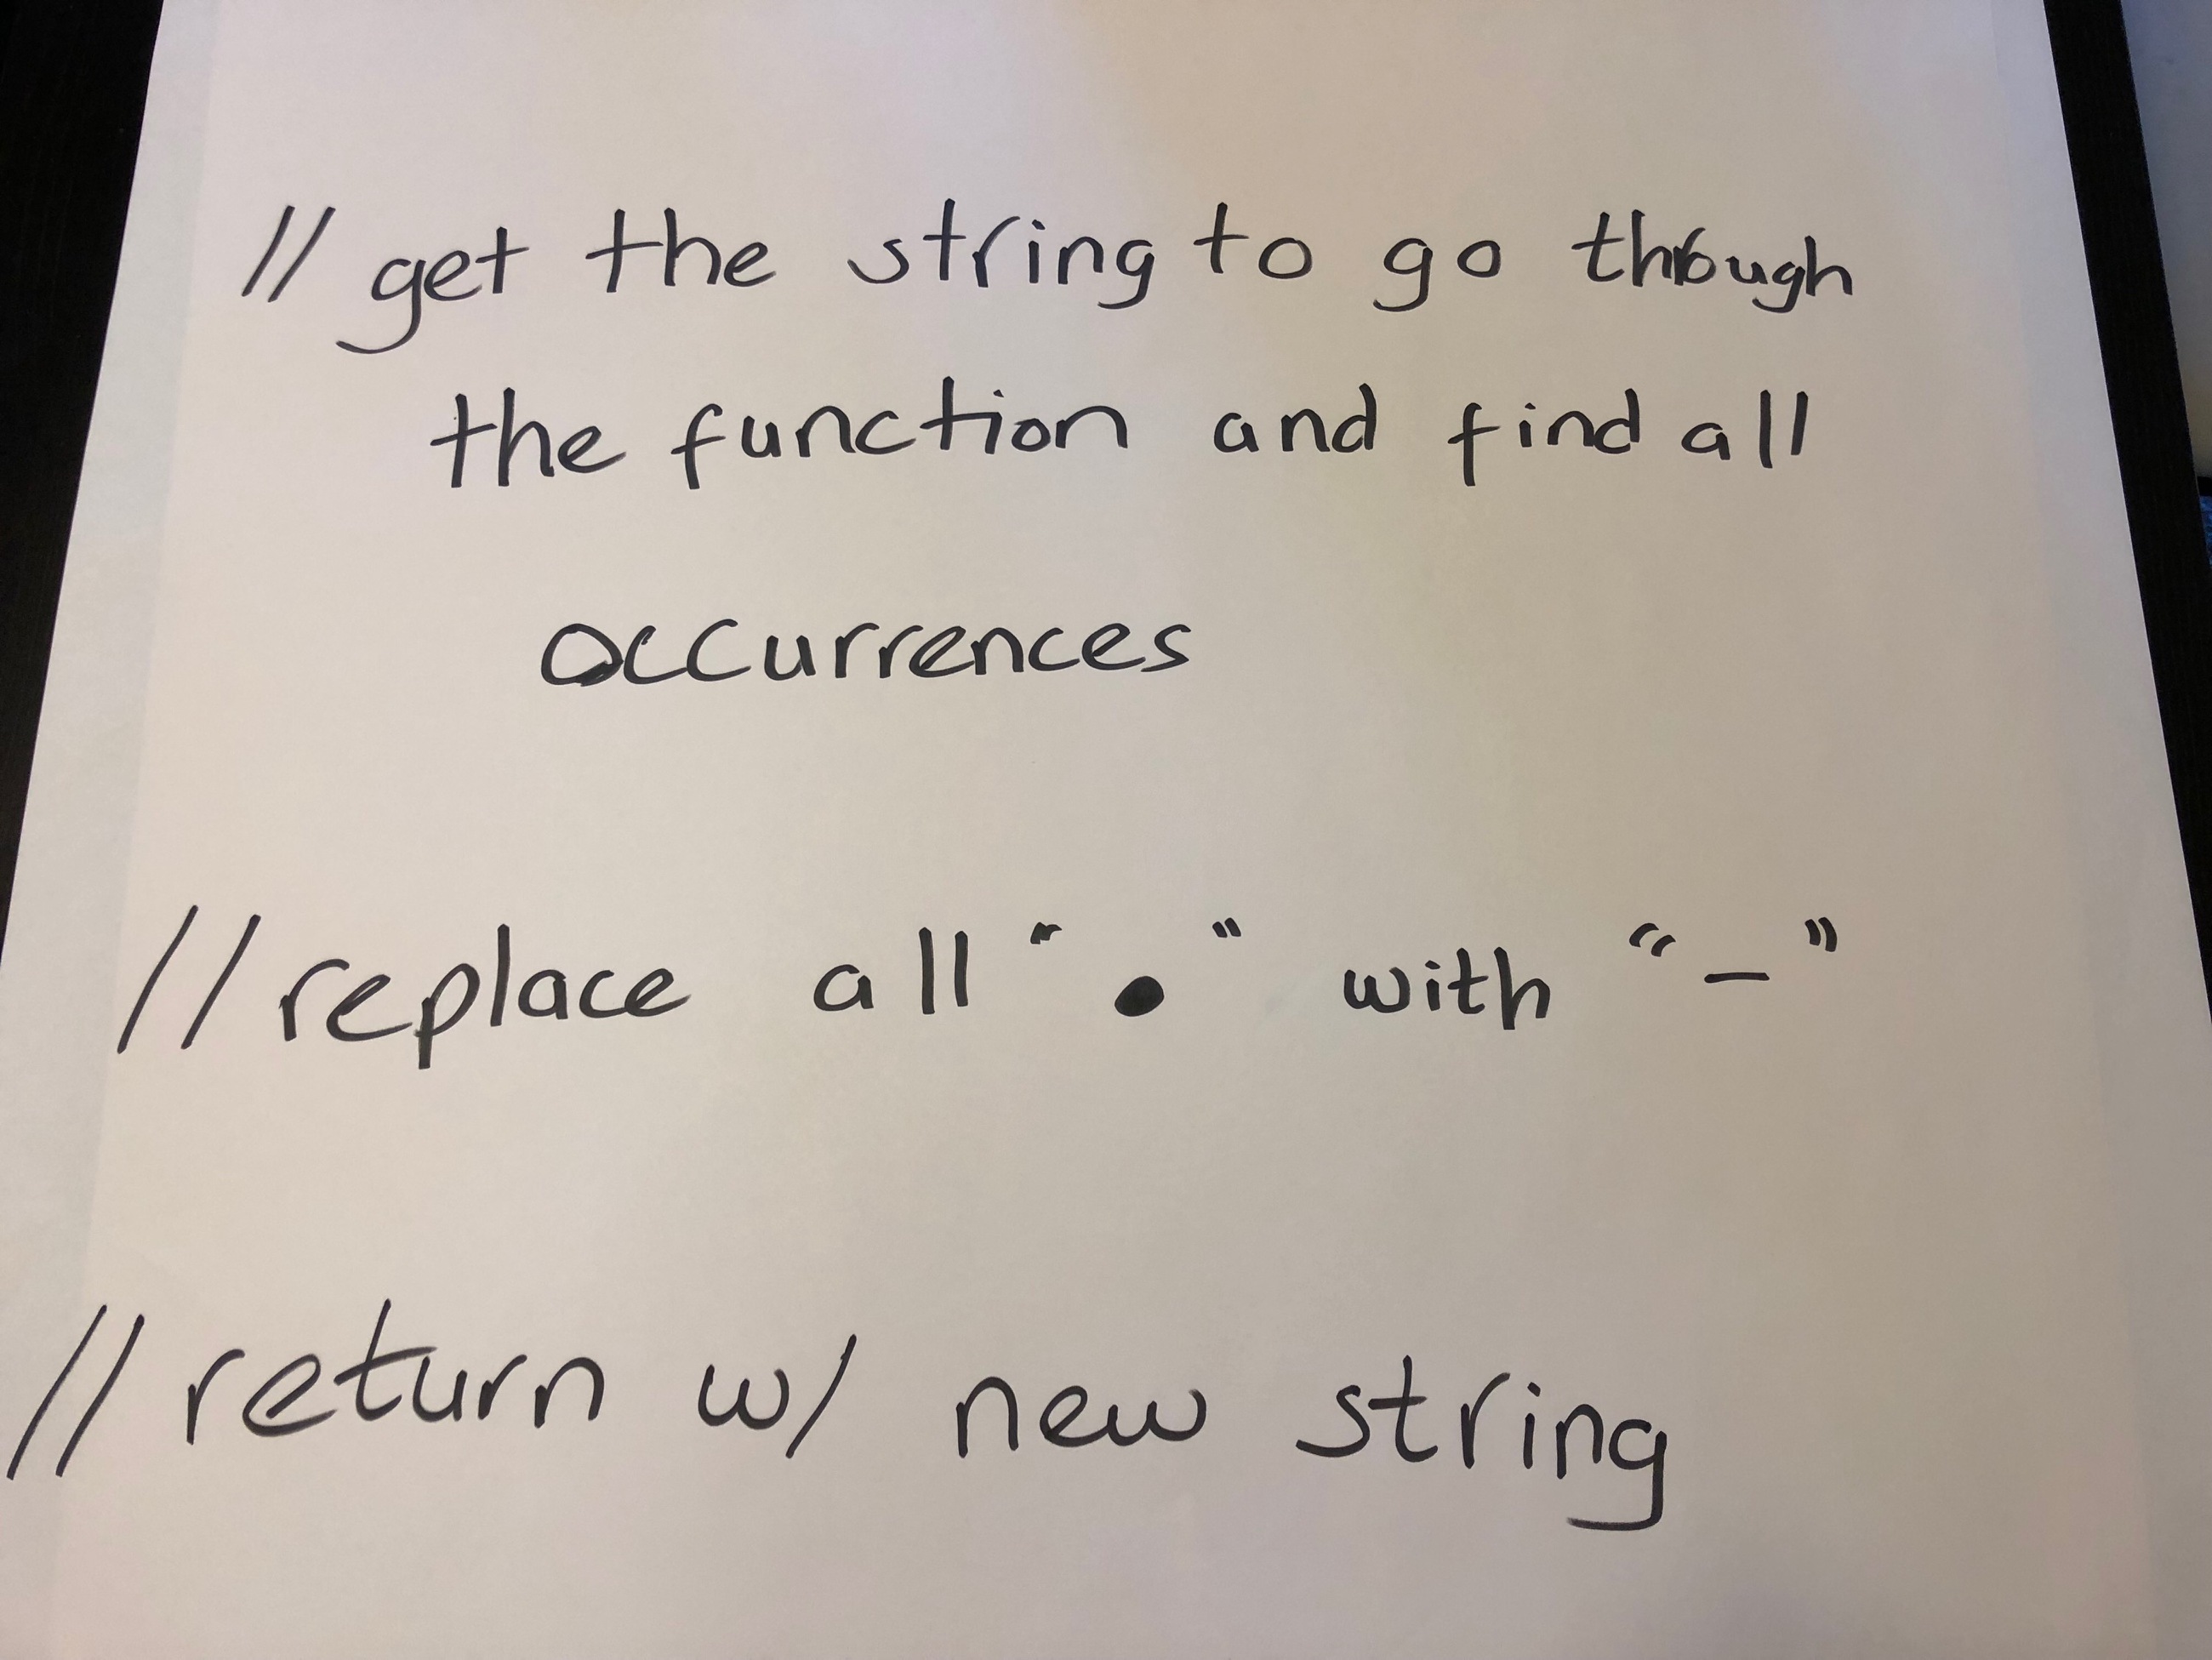 // get the string to go through
the function and find all
occurrences
// replace all "." with "-"
// return w/ new string